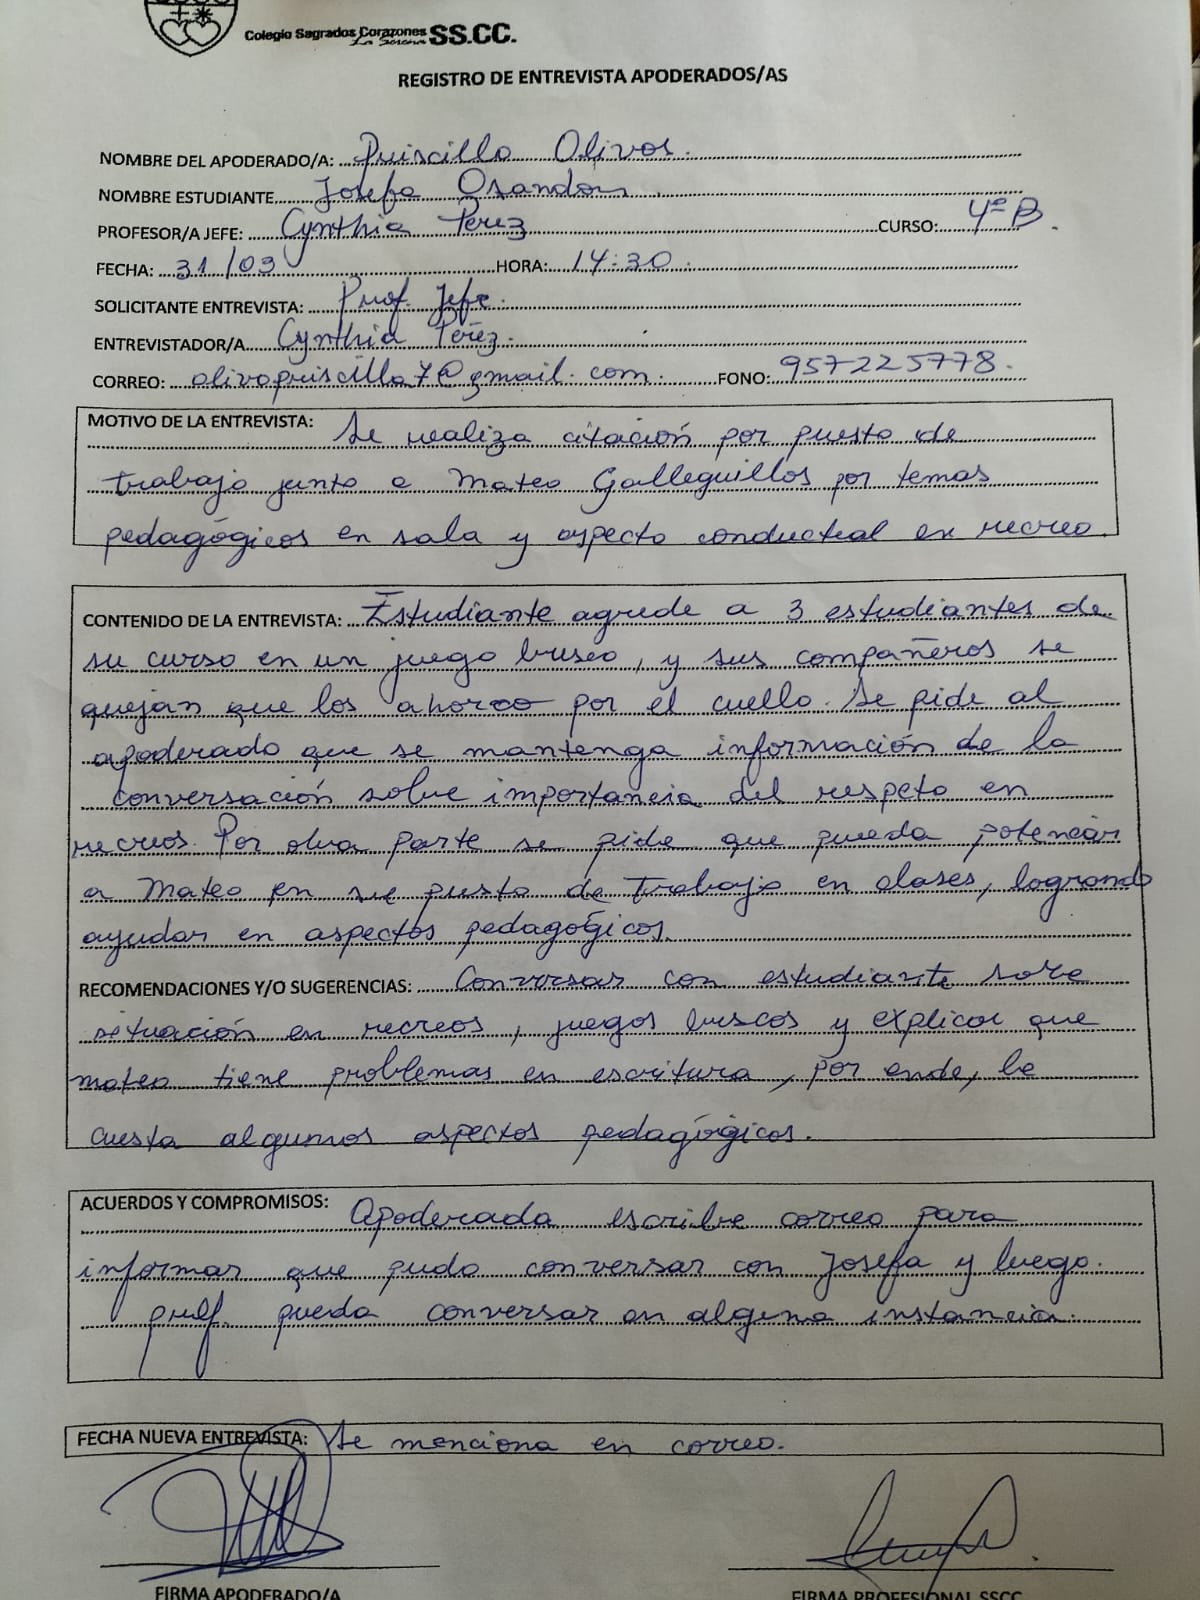 Colegio Sagrados Corazones SS.CC.
La Serena
REGISTRO DE ENTREVISTA APODERADOS/AS
NOMBRE DEL APODERADO/A: Priscilla Olivos.
NOMBRE ESTUDIANTE Josefa Osandon
PROFESOR/A JEFE: Cynthia Pérez CURSO: 4º B.
FECHA: 31/03 HORA: 14:30.
SOLICITANTE ENTREVISTA: Prof. Jefe.
ENTREVISTADOR/A Cynthia Pérez.
CORREO: olivopriscilla7@gmail.com. FONO: 957225778.
MOTIVO DE LA ENTREVISTA: Se realiza citación por puesto de
trabajo junto a Mateo Galleguillos por temas
pedagógicos en sala y aspecto conductual en recreo.
CONTENIDO DE LA ENTREVISTA: Estudiante agrede a 3 estudiantes de
su curso en un juego brusco, y sus compañeros se
quejan que los ahorco por el cuello. Se pide al
apoderado que se mantenga información de la
conversación sobre importancia del respeto en
recreos. Por otra parte se pide que pueda potenciar
a Mateo en su puesto de trabajo en clases, logrando
ayudar en aspectos pedagógicos.
RECOMENDACIONES Y/O SUGERENCIAS: Conversar con estudiante sobre
situación en recreos, juegos bruscos y explicar que
mateo tiene problemas en escritura, por ende, le
cuesta algunos aspectos pedagógicos.
ACUERDOS Y COMPROMISOS: Apoderada escribe correo para
informar que pudo conversar con Josefa y luego.
prof. pueda conversar en alguna instancia.
FECHA NUEVA ENTREVISTA: Se menciona en correo.
FIRMA APODERADO/A FIRMA PROFESIONAL SSCC